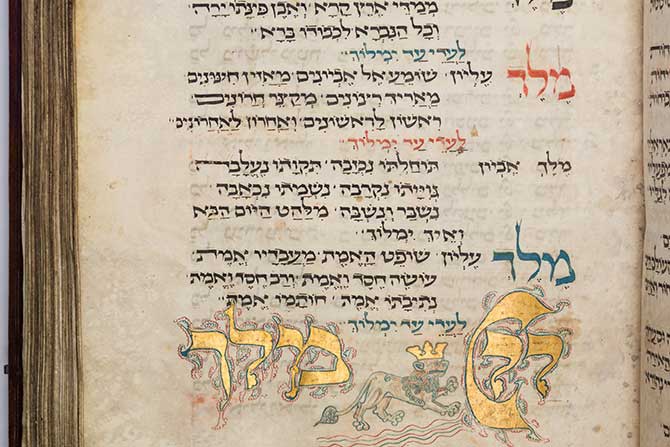 ממדי ארץ קרא ואבן פינתו ירה
וכל הנברא לכבודו ברא
לעדי עד ימלוך
מלך עליון שומע אל אביונים מאזין חינונים
מאריך רינונים מקצר חרונים
ראשון לראשונים ואחרון לאחרונים
לעדי עד ימלוך
מלך אביון תוחלתו נכזבה תקותו נעלבה
גוייתו נקרבה נשמתו נכאבה
נשבר ונשבה מלהט היום הבא
ואיך ימלוך
מלך עליון שופט האמת מעבדיו אמת
עושה חסד ואמת ורב חסד ואמת
נתיבתו אמת חותמו אמת
לעדי עד ימלוך
ייי מלך